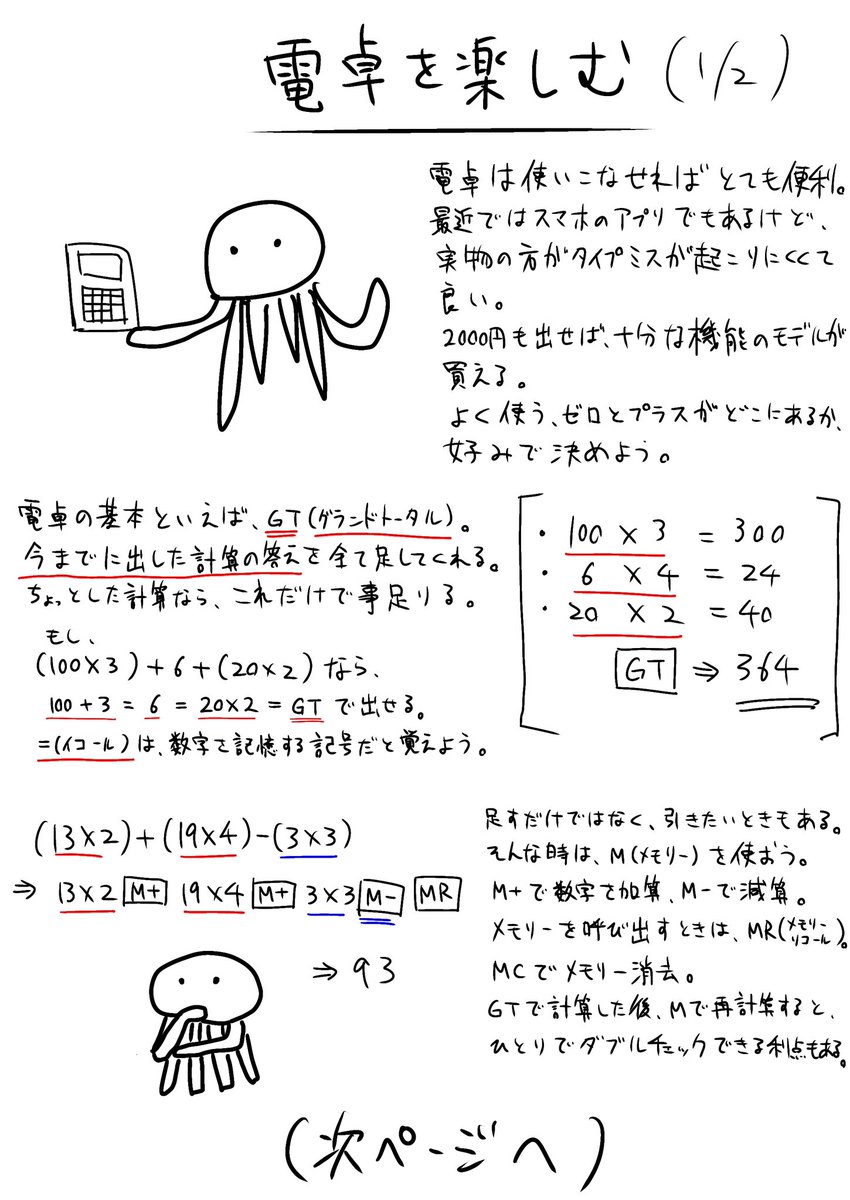 電卓を楽しむ(1/2)
電卓は使いこなせればとても便利。
最近ではスマホのアプリでもあるけど、
実物の方がタイプミスが起こりにくくて
良い。
2000円も出せば、十分な機能のモデルが
買える。
よく使う、ゼロとプラスがどこにあるか、
好みで決めよう。
電卓の基本といえば、GT(グランドトータル)。
今までに出した計算の答えを全て足してくれる。
ちょっとした計算なら、これだけで事足りる。
もし、
(100×3)+6+(20×2)なら、
100+3=6=20×2=GTで出せる。
=(イコール)は、数字を記憶する記号だと覚えよう。
・100×3=300
・6×4=24
・20×2=40
GT⇒364
(13×2)+(19×4)-(3×3)
⇒13×2 M+ 19×4 M+ 3×3 M- MR
⇒93
足すだけではなく、引きたいときもある。
そんな時は、M(メモリー)を使おう。
M+で数字を加算、M-で減算。
メモリーを呼び出すときは、MR(メモリーリコール)。
MCでメモリー消去。
GTで計算した後、Mで再計算すると、
ひとりでダブルチェックできる利点もある。
(次ページへ)